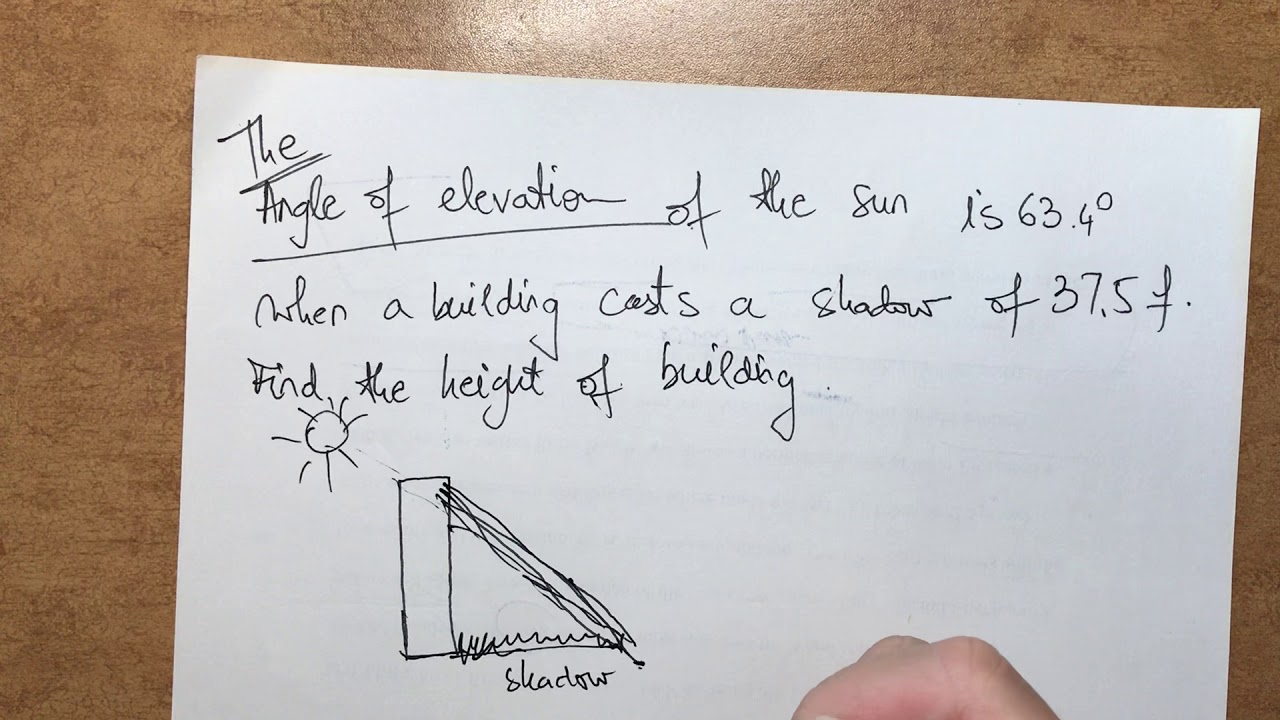 The
Angle of elevation of the sun is 63.4°
when a building casts a shadow of 37.5 f.
Find, the height of building.
shadow